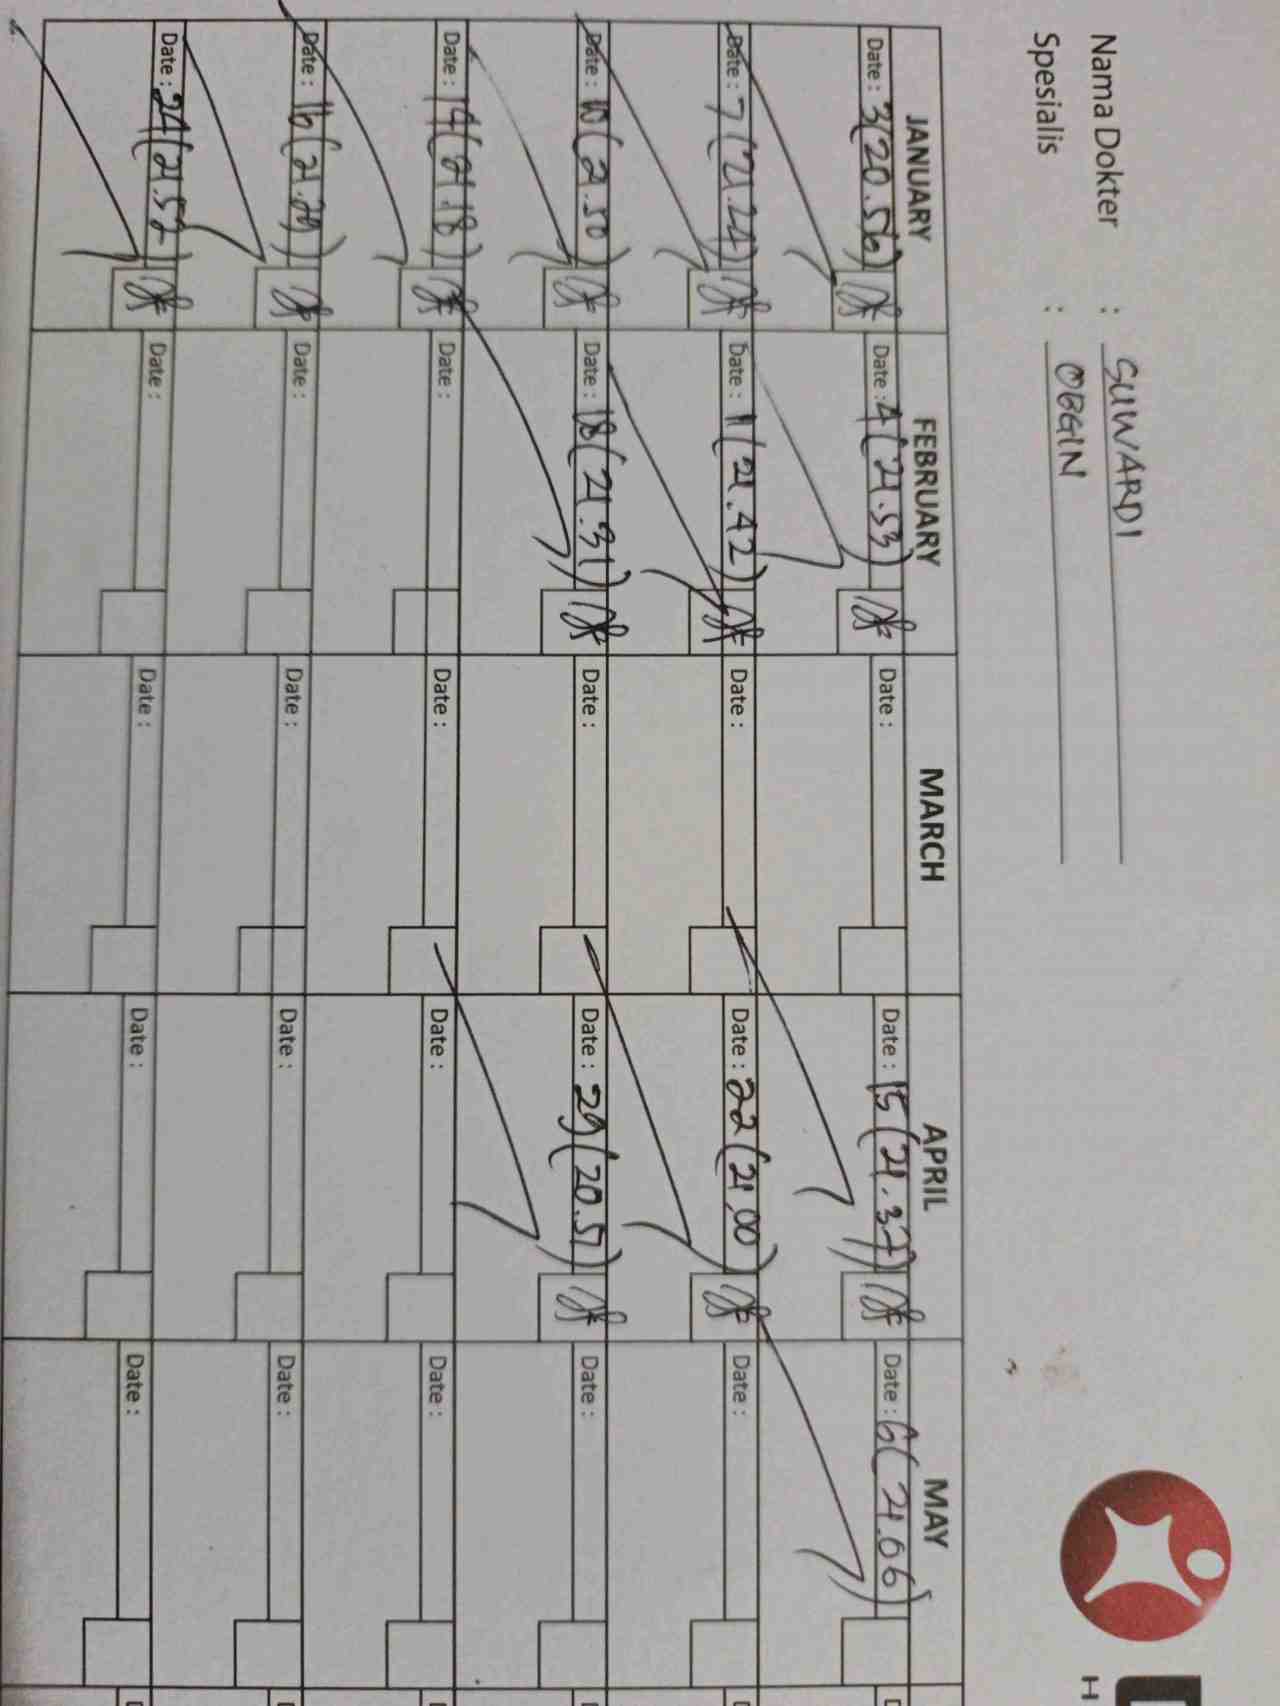 Nama Dokter : SUWARDI
Spesialis : OBGIN
JANUARY FEBRUARY MARCH APRIL MAY
Date : 3(20.56) Date : 4(21.53) Date : Date : 15(21.37) Date : 6(21.06)
Date : 7(21.24) Date : 11(21.42) Date : Date : 22(21.00) Date :
Date : 10(21.50) Date : 18(21.31) Date : Date : 29(20.51) Date :
Date : 14(21.18) Date : Date : Date : Date :
Date : 16(21.29) Date : Date : Date : Date :
Date : 24(21.52) Date : Date : Date : Date :